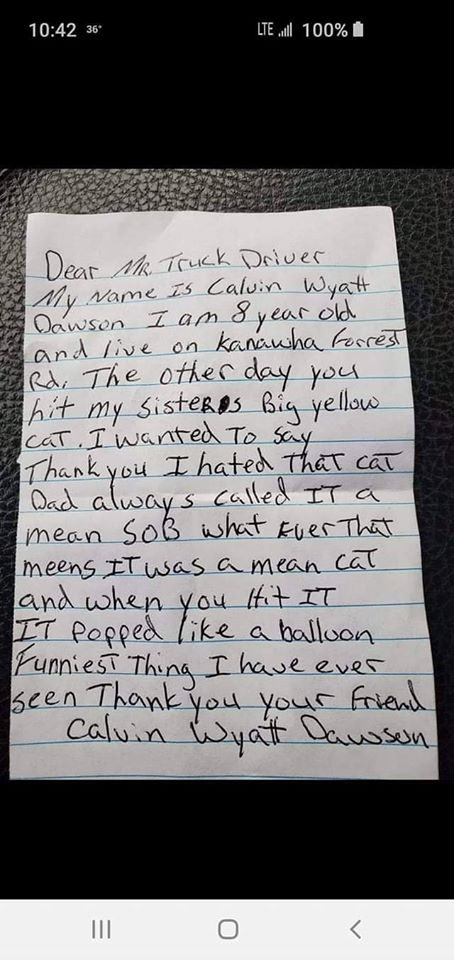 10:42 36° LTE 100%
Dear MR. Truck Driver
My Name Is Calvin Wyatt
Dawson I am 8 year old
and live on Kanawha Forrest
Rd. The other day you
hit my sisters Big yellow
cat. I wanted To say
Thank you I hated That cat
Dad always called IT a
mean SOB what Ever That
meens IT was a mean cat
and when you Hit IT
IT Popped like a balloon
Funniest Thing I have ever
seen Thank you your friend
Calvin Wyatt Dawson